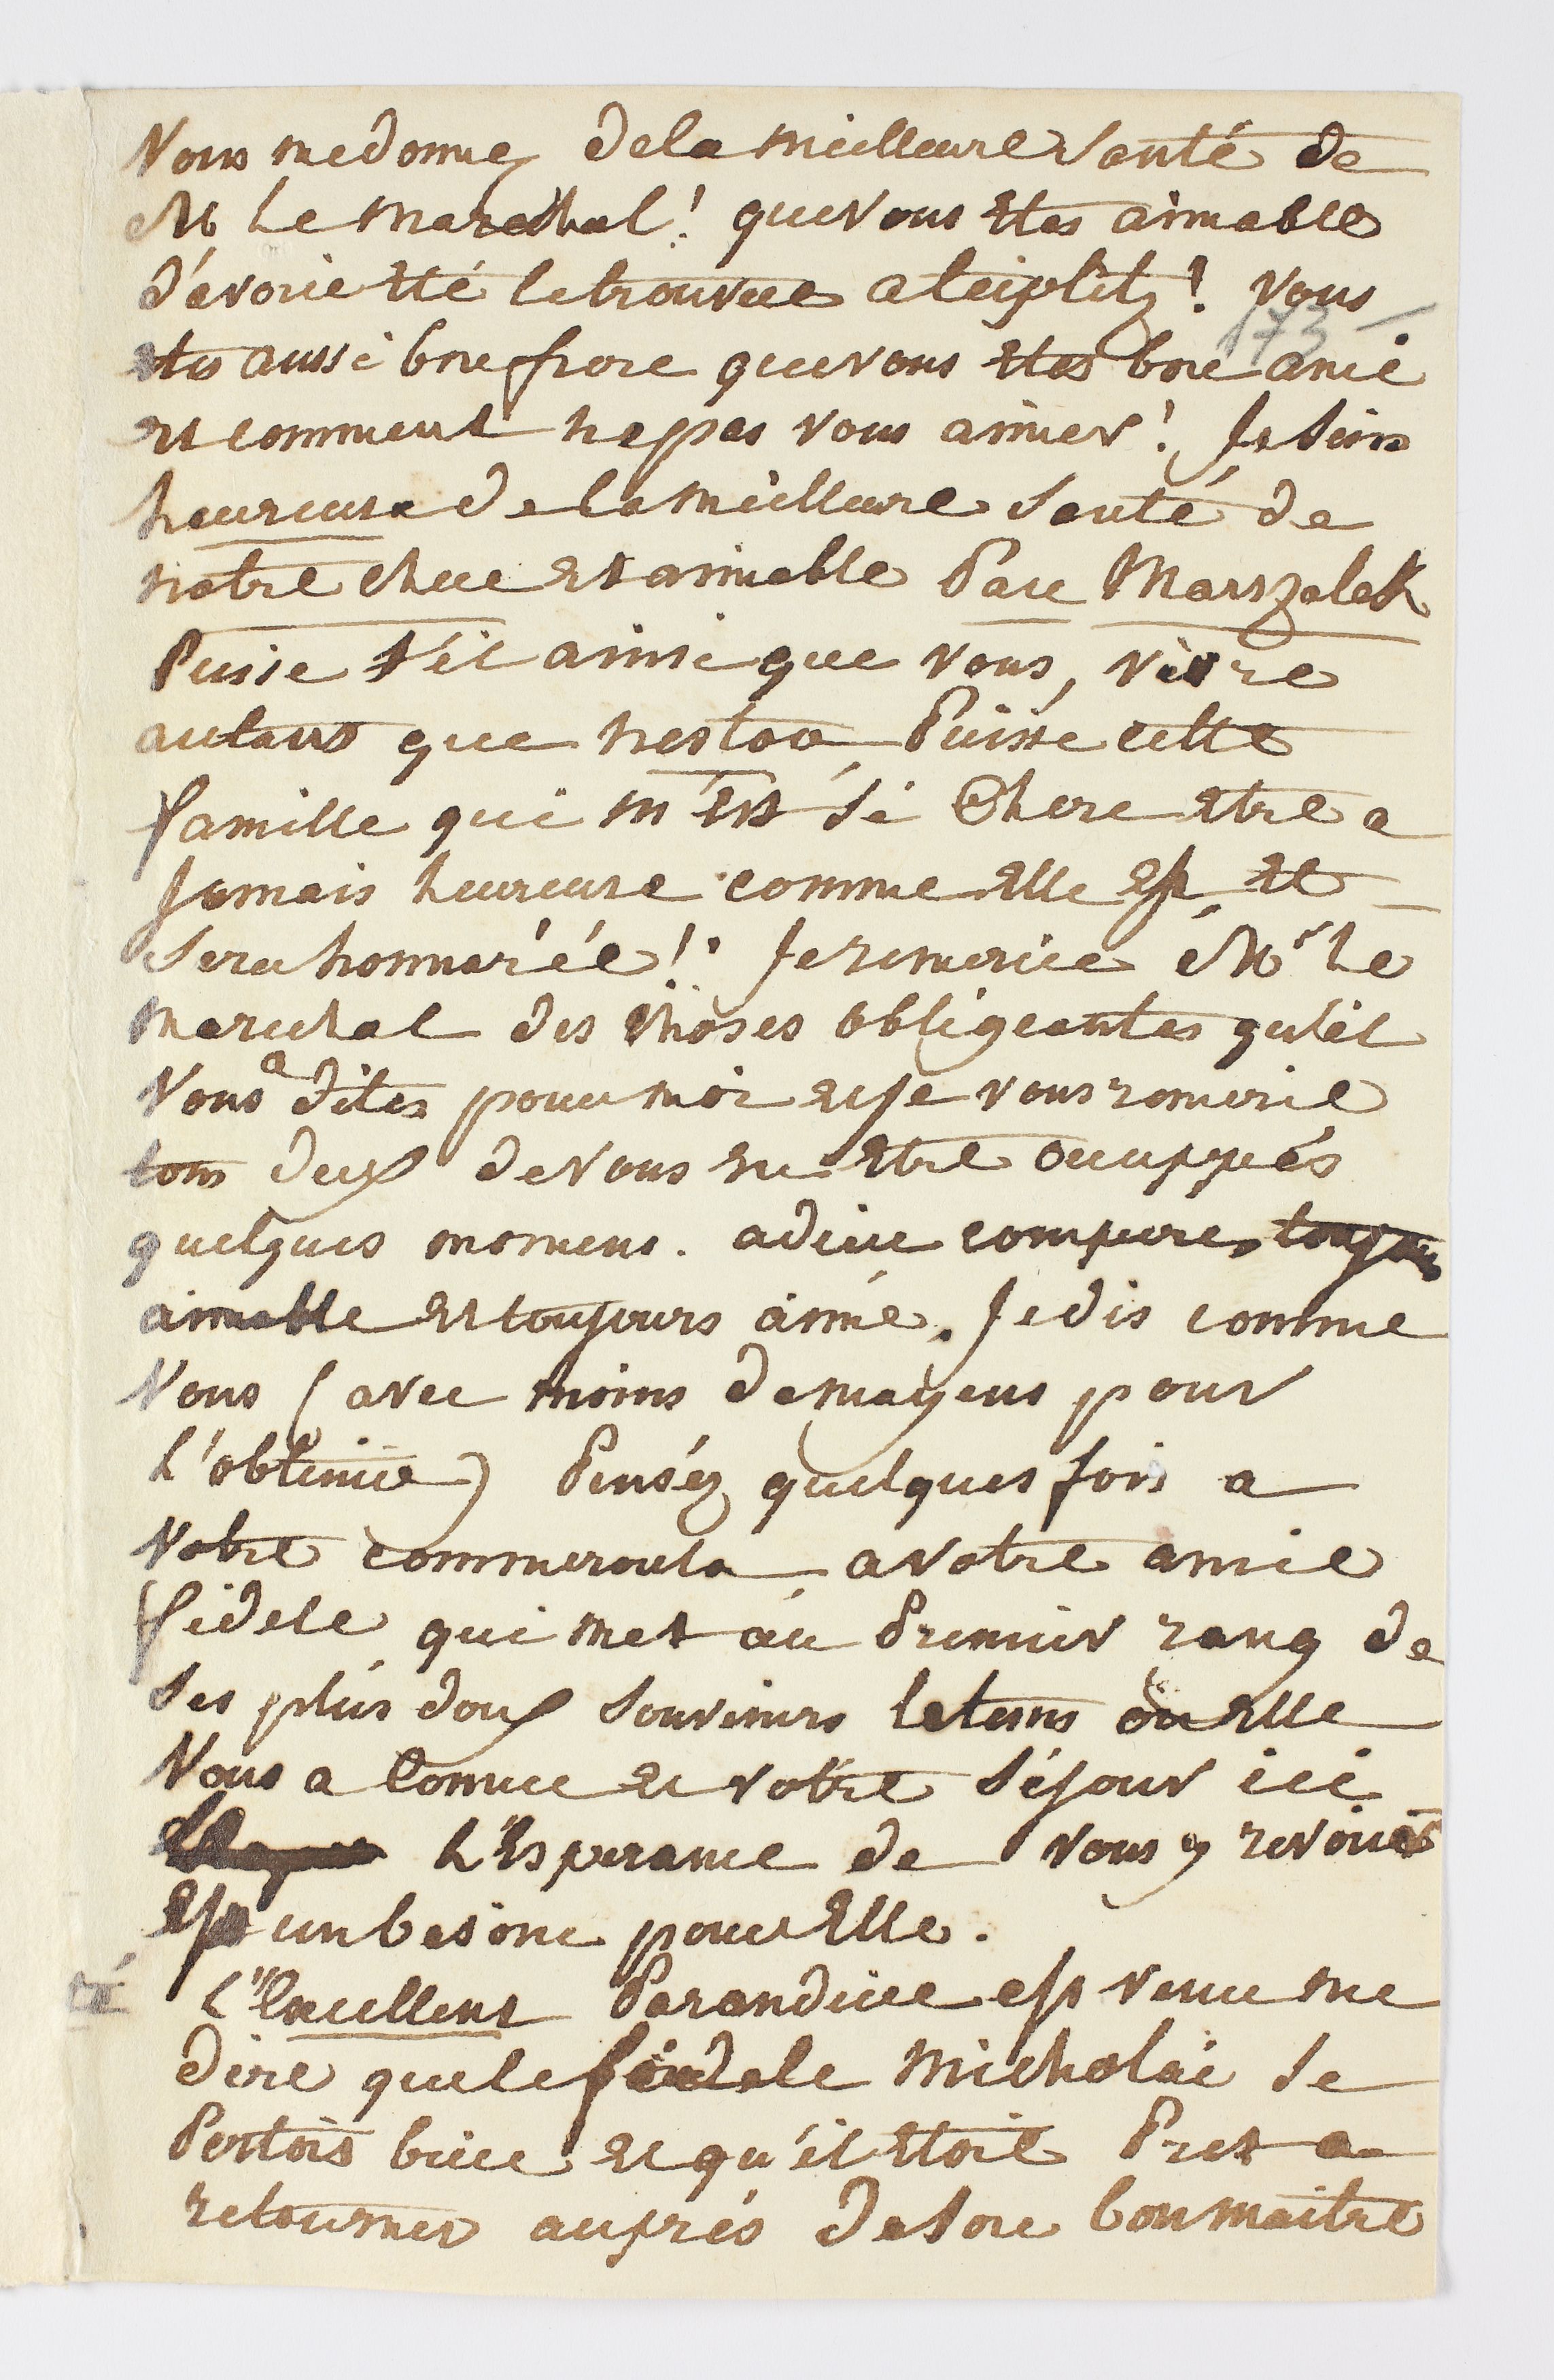 Vous me donnez de la meilleure santé de
M Le marechal! que vous etes aimable
d'avoir été le trouver a teiplitz! Vous
173
etes aussi bon frere que vous etes bon ami
et comment ne pas vous aimer! Je suis
heureuse de la meilleure santé de
notre cher et aimable Pan Marszalek
Puisse t'il ainsi que vous, vivre
autant que nestor Puisse cette
famille qui m'est si Chere etre a
Jamais heureuse comme elle est et
sera honnorée! Je remercie Mr Le
marechal des choses obligeantes qu'il
Vous a dites pour moi et je vous remercie
tous deux de vous en etre occuppés
quelques momens. adieu compere, toujours
aimable et toujours aimé. Je dis comme
Vous (avec moins de moyens pour
L'obtenir) Pensés quelques fois a
Votre commeroula a votre amie
fidele qui met au Premier rang de
ses plus doux souvenirs le tems ou elle
Vous a connu et votre séjour ici
L'Esperance de vous y revoir
est un besoin pour Elle.
L'Excellent Parandier est venu me
dire que le fidele Micholai se
Portois bien et qu'il etoit Pret a
retourner auprés de son bon maitre
té